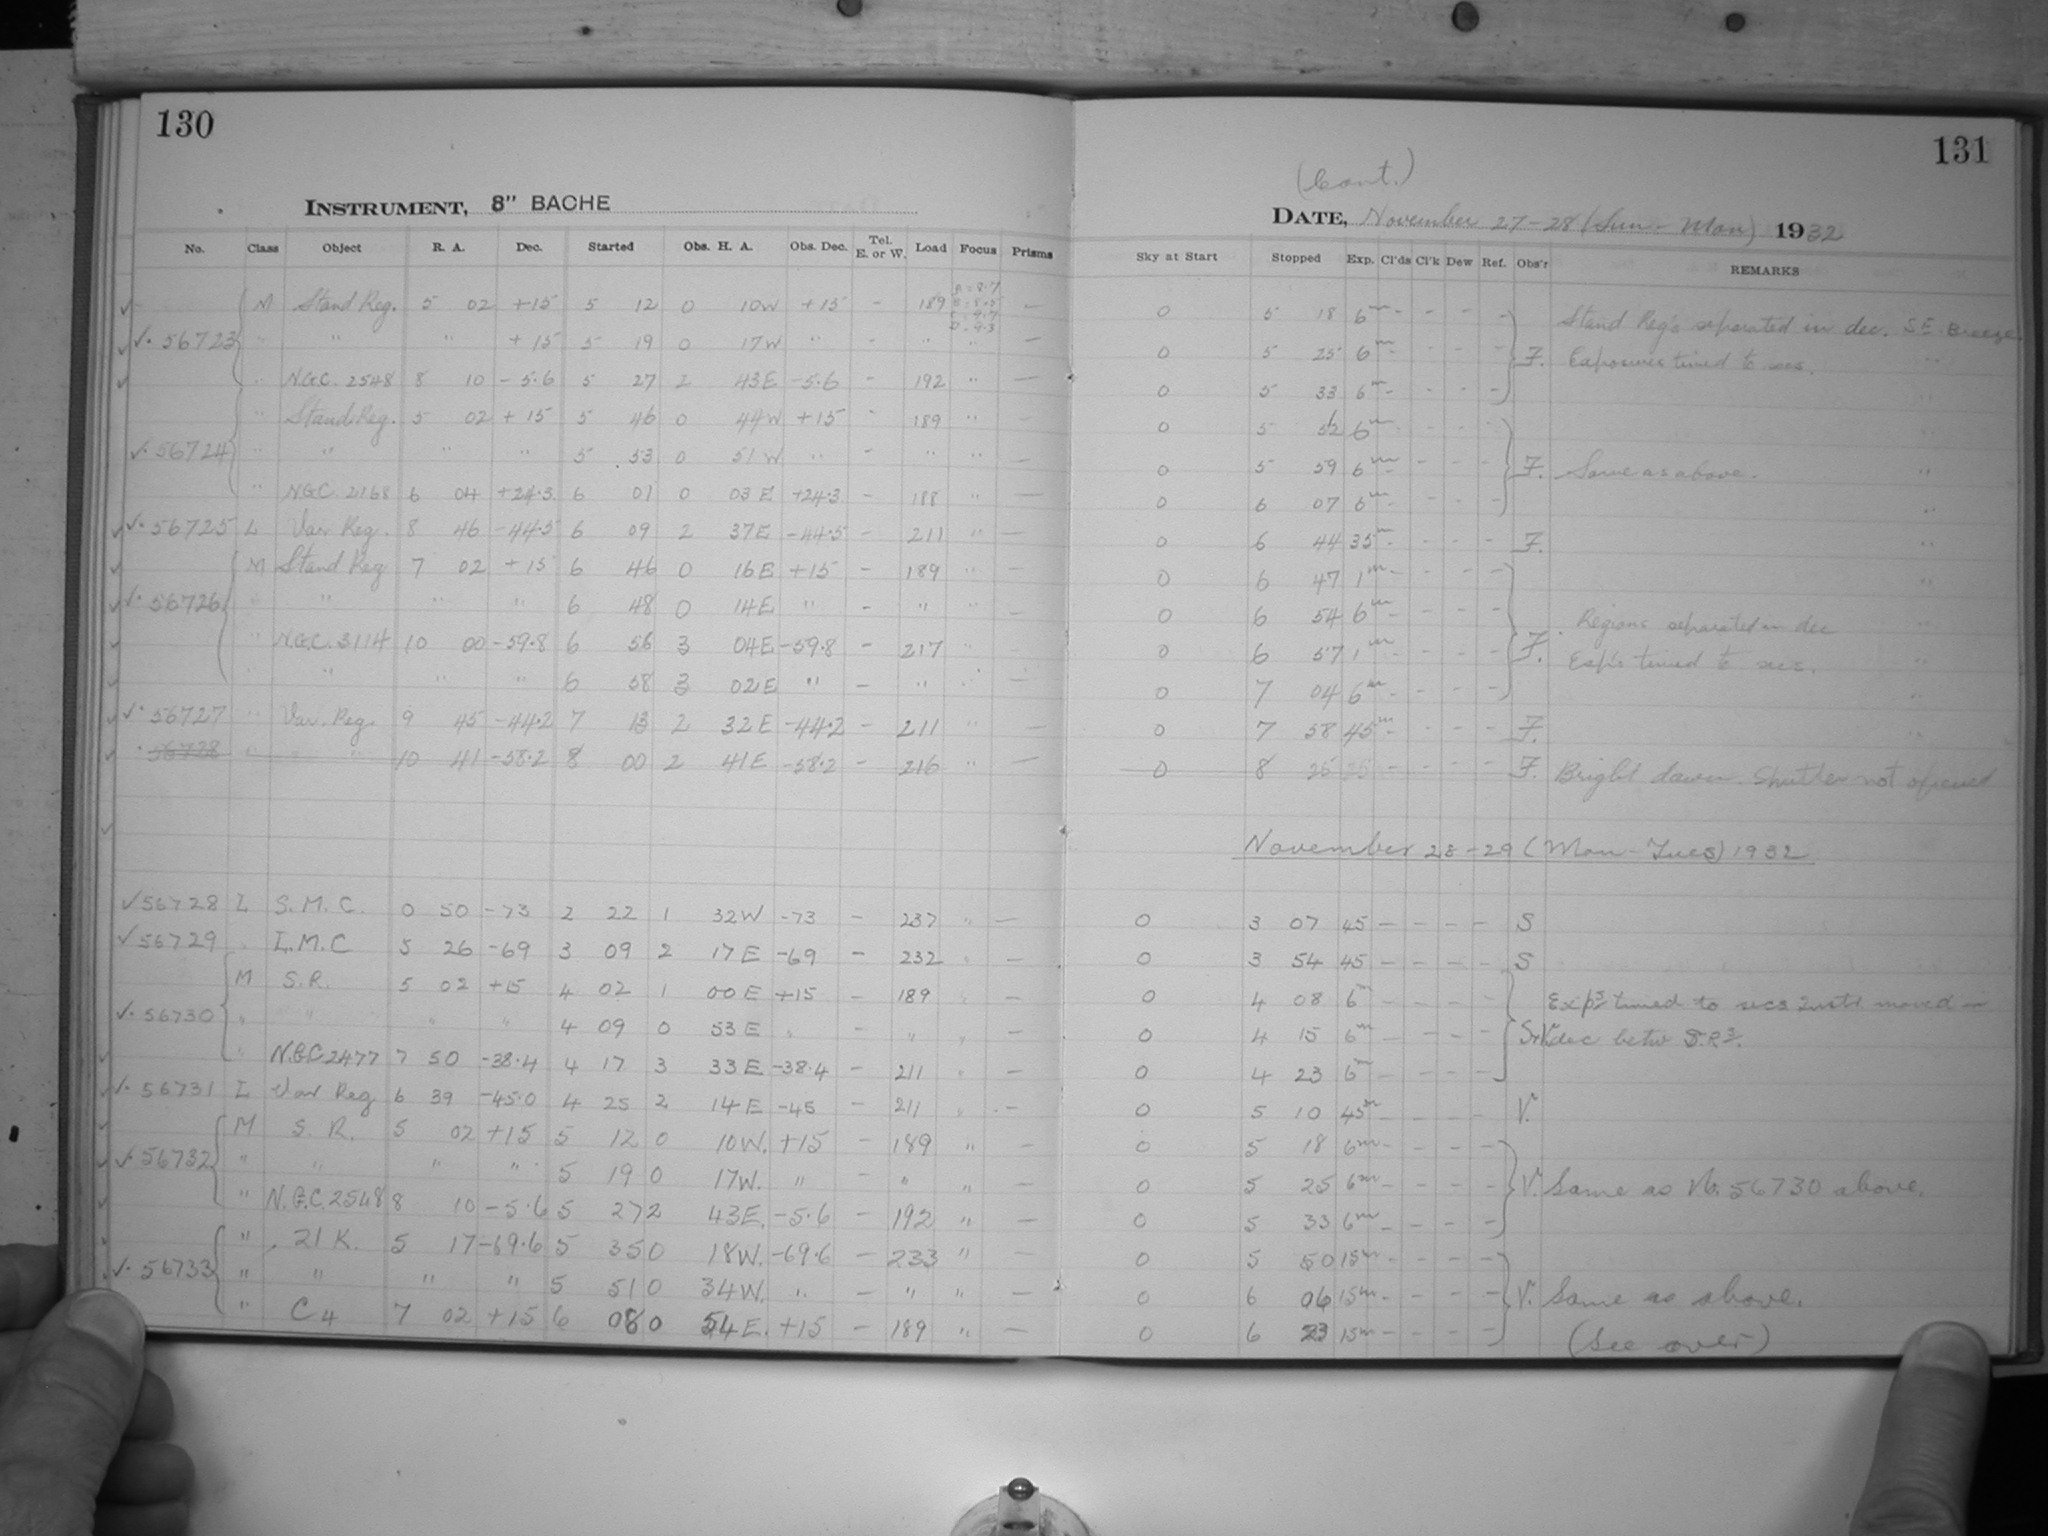 130
131
(Cont.)
INSTRUMENT, 8" BACHE
DATE, November 27-28 (Sun - Mon) 1932
No. Class Object R. A. Dec. Started Obs. H. A. Obs. Dec. Tel. E. or W. Load Focus Prisms Sky at Start Stopped Exp. Cl'ds Cl'k Dew Ref. Obs'r REMARKS
M Stand Reg. 5 02 +15 5 12 0 10W +15 - 189 A = 8.7 B = 8.5 C = 9.7 D = 9.3 — 0 5 18 6m - - - - Stand Reg's separated in dec. S.E. Breeze.
✓. 56723 " " " +15 5 19 0 17W " - " " — 0 5 25 6m - - - - F. Exposures timed to secs. "
" N.G.C. 2548 8 10 -5.6 5 27 2 43E -5.6 - 192 " — 0 5 33 6m - - - - "
" Stand. Reg. 5 02 +15 5 46 0 44W +15 - 189 " 0 5 52 6m - - - - "
✓. 56724 " " " " 5 53 0 51W " - " " — 0 5 59 6m - - - - F. Same as above. "
" N.G.C. 2168 6 04 +24.3 6 01 0 03E +24.3 - 188 " — 0 6 07 6m - - - - "
✓. 56725 L Var Reg. 8 46 -44.5 6 09 2 37E -44.5 - 211 " — 0 6 44 35m - - - - F. "
M Stand Reg 7 02 +15 6 46 0 16E +15 - 189 " — 0 6 47 1m - - - - "
✓. 56726 " " " " 6 48 0 14E " - " " — 0 6 54 6m - - - - Regions separated in dec "
" N.G.C. 3114 10 00 -59.8 6 56 3 04E -59.8 - 217 " — 0 6 57 1m - - - - F. Exp's timed to secs. "
" " " " 6 58 3 02E " - " " — 0 7 04 6m - - - - "
✓. 56727 " Var. Reg. 9 45 -44.2 7 13 2 32E -44.2 - 211 " — 0 7 58 45m - - - - F. "
56728 " " 10 41 -58.2 8 00 2 41E -58.2 - 216 " — 0 8 25 25 - - - - F. Bright dawn. Shutter not opened
November 28-29 (Mon-Tues) 1932
✓56728 L S.M.C. 0 50 -73 2 22 1 32W -73 - 237 " — 0 3 07 45 - - - - S
✓56729 " L.M.C 5 26 -69 3 09 2 17E -69 - 232 " — 0 3 54 45 - - - - S
M S.R. 5 02 +15 4 02 1 00E +15 - 189 " — 0 4 08 6m - - - - Exps timed to secs Inst moved in
✓. 56730 " " " " 4 09 0 53E " - " " — 0 4 15 6m - - - - dec betw S.Rs.
" N.G.C 2477 7 50 -38.4 4 17 3 33E -38.4 - 211 " — 0 4 23 6m - - - -
✓. 56731 L Var Reg 6 39 -45.0 4 25 2 14E -45 - 211 " — 0 5 10 45m - - - - V.
M S. R. 5 02 +15 5 12 0 10W. +15 - 189 " — 0 5 18 6m - - - -
✓. 56732 " " " " 5 19 0 17W. " - " " — 0 5 25 6m - - - - V. Same as No. 56730 above.
" N.G.C. 2548 8 10 -5.6 5 27 2 43E. -5.6 - 192 " — 0 5 33 6m - - - -
" 21 K. 5 17 -69.6 5 35 0 18W. -69.6 - 233 " — 0 5 50 15m - - - -
✓. 56733 " " " " 5 51 0 34W. " - " " — 0 6 06 15m - - - - V. Same as above.
" C4 7 02 +15 6 08 0 54E. +15 - 189 " — 0 6 23 15m - - - - (See over)